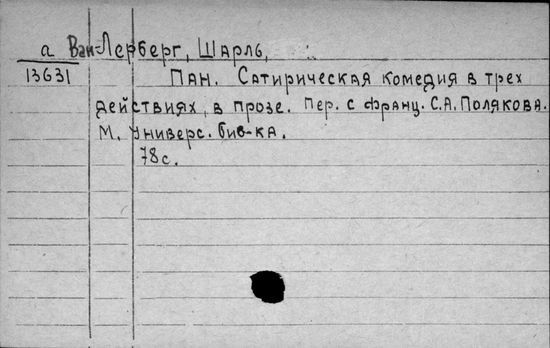 а Ван-Лерберг, Шарль,
13631 Пан. Сатирическая комедия в трех
действиях, в прозе. Пер. с франц. С.А. Полякова.
М. Универс. биб-ка.
78 с.